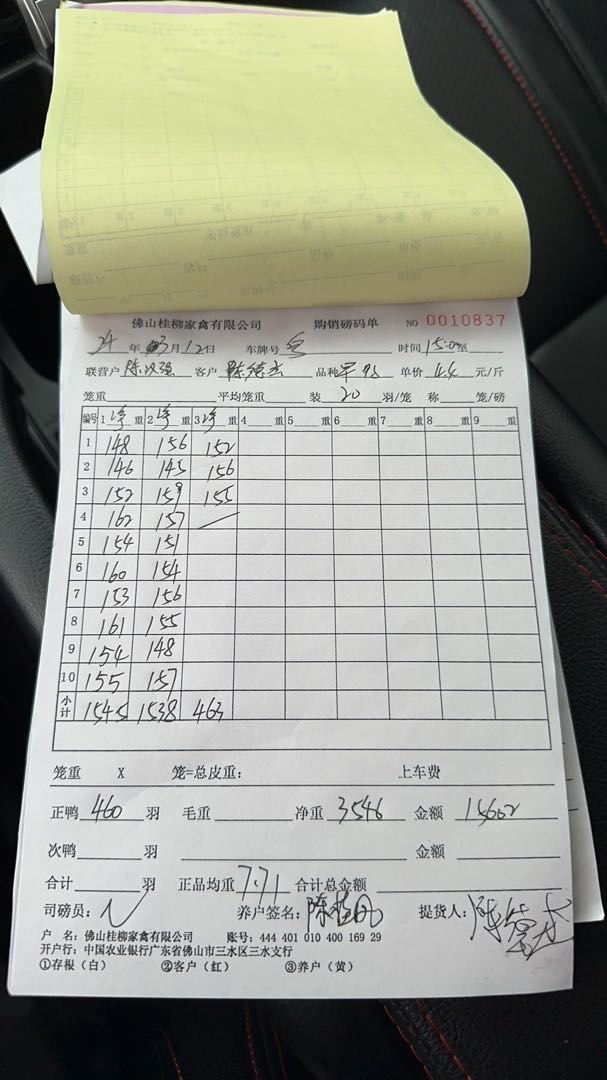 佛山桂柳家禽有限公司 购销磅码单 NO 0010837
24年03月12日 车牌号 时间15:00至
联营户 陈汉强 客户 陈德 品种 单价 4.4 元/斤
笼重 平均笼重 装 20 羽/笼 称 笼/磅
编号 1 净重 2 净重 3 净重 4 重 5 重 6 重 7 重 8 重 9 重
1 148 156 152
2 146 145 156
3 152 159 155
4 162 157
5 154 151
6 160 154
7 153 156
8 161 155
9 154 148
10 155 157
小计 1545 1538 463
笼重 X 笼=总皮重: 上车费
正鸭 460 羽 毛重 净重 3546 金额 15602
次鸭 羽 金额
合计 羽 正品均重 7.71 合计总金额
司磅员: 养户签名: 提货人:
户 名: 佛山桂柳家禽有限公司 账号: 444 401 010 400 169 29
开户行: 中国农业银行广东省佛山市三水区三水支行
①存根(白) ②客户(红) ③养户(黄)